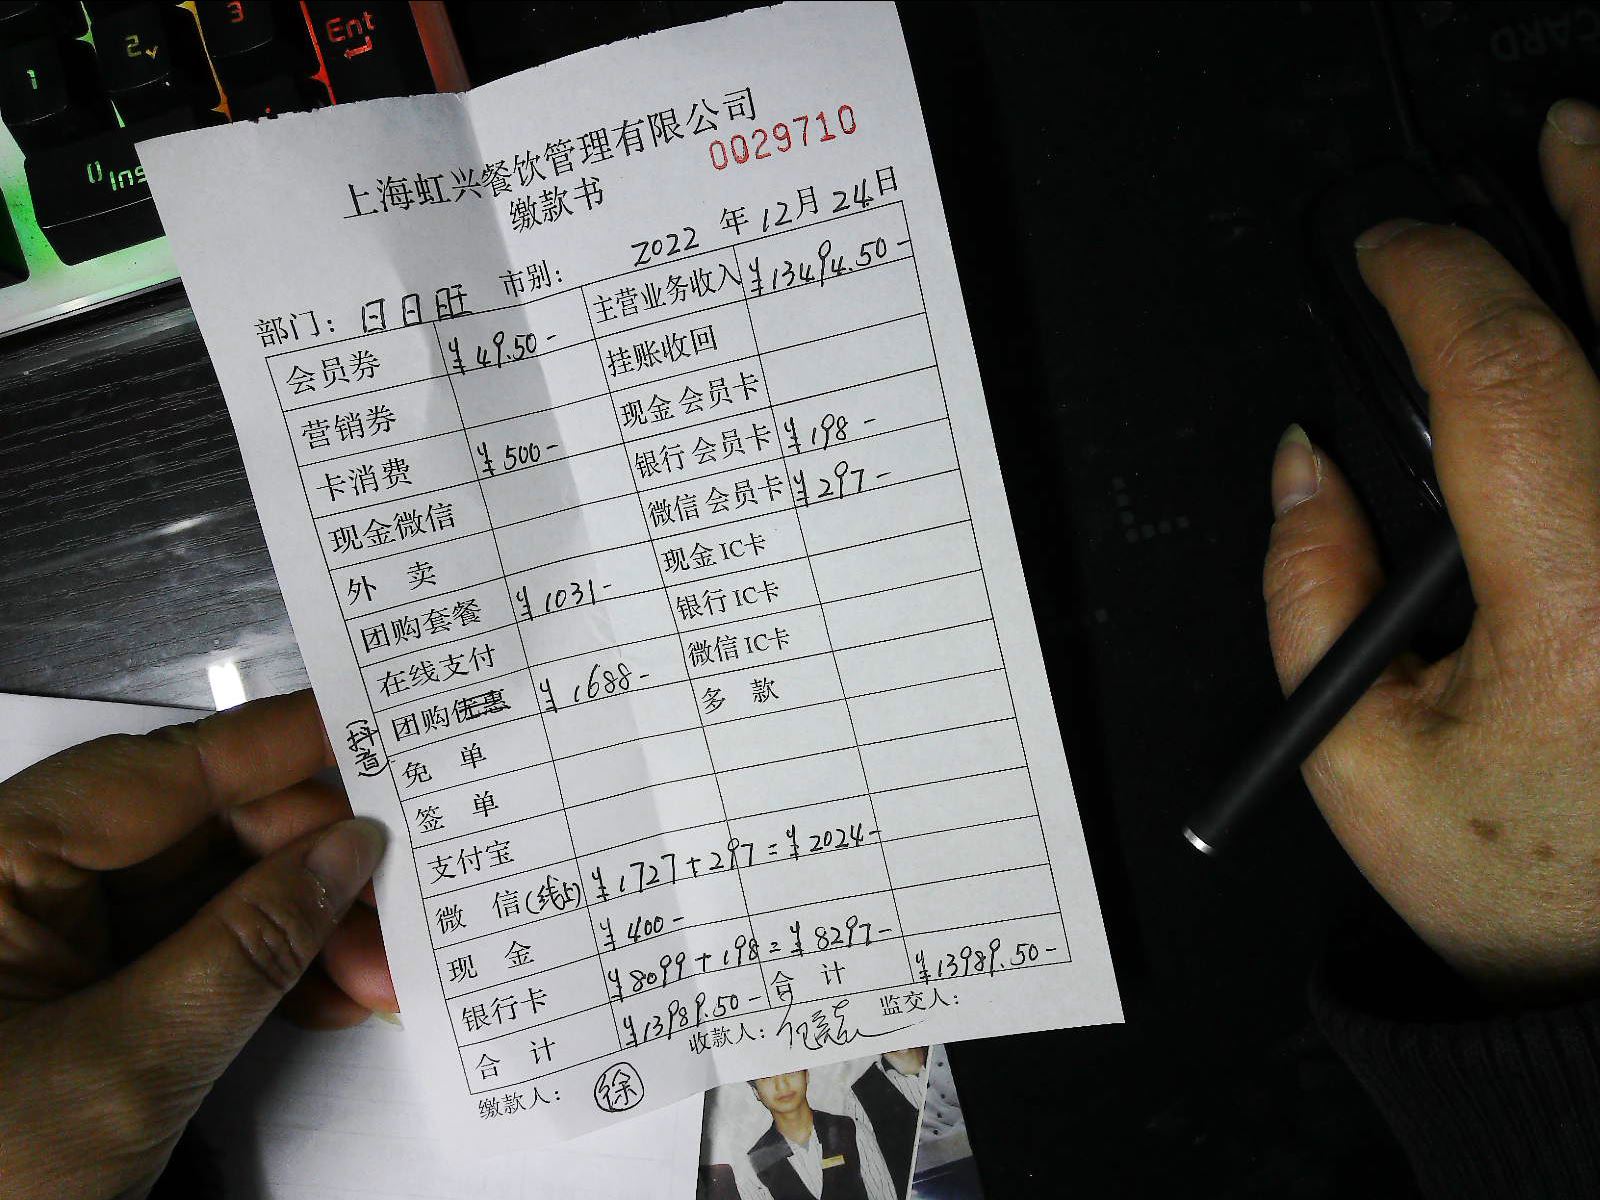 1
2
3
Ent
Ins
CARD
上海虹兴餐饮管理有限公司
0029710
缴款书
2022 年 12月 24日
部门： 日日旺 市别：
会员券 ¥49.50- 主营业务收入 ¥13494.50-
营销券 挂账收回
卡消费 ¥500- 现金会员卡
现金微信 银行会员卡 ¥198-
外 卖 微信会员卡 ¥297-
团购套餐 ¥1031- 现金IC卡
在线支付 银行IC卡
(抖音) 团购优惠 ¥1688- 微信IC卡
免 单 多 款
签 单
支付宝
微 信(线上) ¥1727+297=¥2024-
现 金 ¥400-
银行卡 ¥8099+198=¥8297-
合 计 ¥13989.50- 合 计 ¥13989.50-
缴款人： 徐 收款人： 监交人：